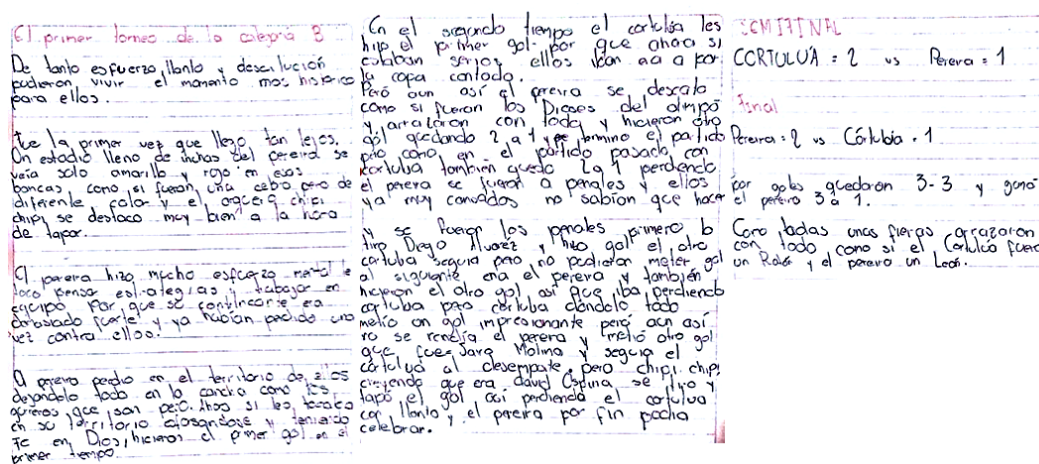 El primer torneo de la categoria B
De tanto esfuerzo, llanto y
pudieron vivir el momento mas historico
para ellos.
Fue la primer vez que llego tan lejos.
Un estadio lleno de inchas del pereira se
veia solo amarillo y rojo en esos
bancas, como si fueran una cebra pero de
diferente color y el arquero chipi
chipi se destaco muy bien a la hora
de tapar.
El pereira hizo mucho esfuerzo mental le
toco pensar estrategias y trabajar en
equipo por que su contrincante era
fuerte y ya habian perdido una
vez contra ellos.
El pereira perdio en el territorio de ellos
dejandolo todo en la cancha como los
que son pero ahora si les
en su territorio y teniendo
Fe en Dios, hicieron el primer gol en el
primer tiempo.
En el segundo tiempo el cortulua les
hizo el primer gol por que ahora si
estaban serios, ellos iban a por
la copa contodo.
Pero aun asi el pereira se descato
como si fueran los Dioses del olimpo
y arralaron con todo y hicieron otro
gol quedando 2 a 1 y se termino el partido
pero como en el partido pasado con
cortulua tambien quedo 2 a 1 perdiendo
el pereira se fueron a penales y ellos
ya muy cansados no sabian que hacer
Y se fueron los penales primero lo
tiro Diego Alvarez y hizo gol el otro
cortulua seguia pero no pudieron meter gol
al siguiente era el pereira y tambien
hicieron el otro gol asi que iba perdiendo
cortulua pero cortulua dandolo todo
metio un gol impresionante pero aun asi
no se rendia el pereira y metio otro gol
que fue Jara Molina y seguia el
cortulua al desempate, pero chipi chipi
creyendo que era david Ospina se tiro y
tapo el gol asi perdiendo el cortulua
con llanto y el pereira por fin podia
celebrar.
SEMIFINAL
CORTULUA = 2 vs Pereira = 1
final
Pereira = 2 vs Cortulua = 1
por goles quedaron 3-3 y gano
el pereira 3 a 1.
Como todas unas fieras arrazaron
con todo como si el Cortulua fuera
un Raton y el pereira un Leon.